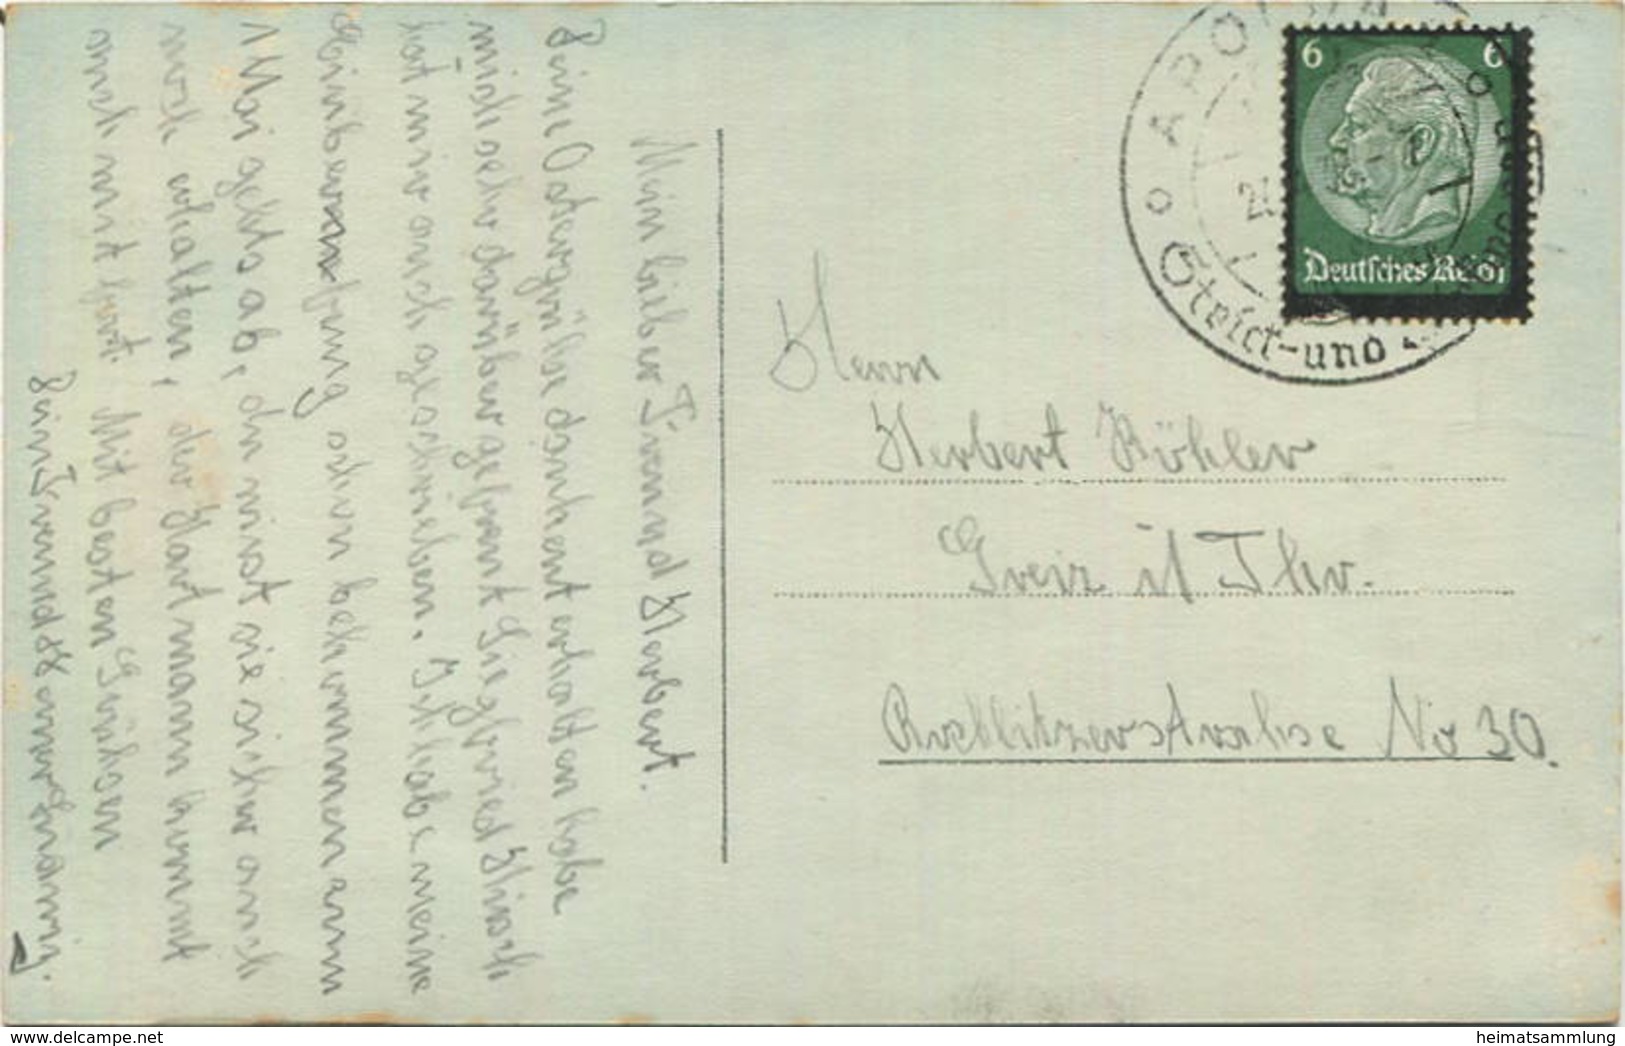 Mein lieber Freund Herbert.
Deine Ostergrüße dankend erhalten habe
mich sehr darüber gefreut Siegfried Hirsch
hat mir auch geschrieben. Ich habe meine
Einberufung schon bekommen am
1 Mai gehts ab, du wirst sie sicher auch
noch erhalten, der
auch mit fort. Mit besten Grüßen
Dein Freund
APOLDA
Strick- und
6 6
Deutsches Reich
Herrn
Herbert Köhler
Greiz i/ Thr.
No 30.
http://www.delcampe.net
heimatsammlung